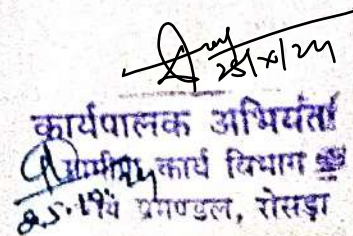 25/x/24
कार्यपालक अभियंता
ग्रामीण कार्य विभाग
कार्य प्रमण्डल, रोसड़ा